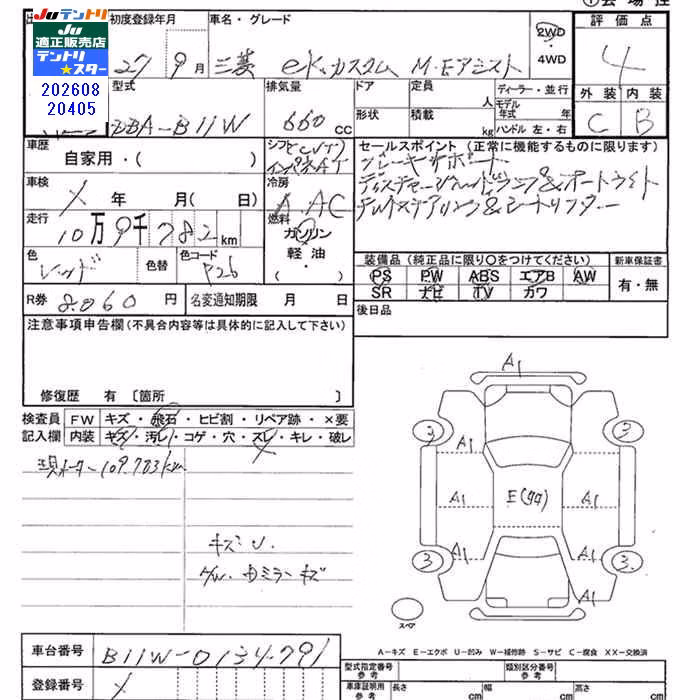 Juテントリ
Ju
適正販売店
テントリ
★スター
202608
20405
初度登録年月
車名・グレード
2WD
・
4WD
評価点
27 9月
三菱 eKカスタム M・Eアシスト
4
型式
排気量
ドア
定員
人
ディーラー・並行
外装
内装
DBA-B11W
660 cc
形状
積載
kg
モデル年式
年
ハンドル 左・右
C
B
車歴
自家用・( )
シフト CVT
インパネAT
セールスポイント (正常に機能するものに限ります)
ブレーキサポート
車検
年 月( 日)
冷房
AAC
ディスチャージヘッドランプ&オートライト
走行
10万9千782km
燃料
ガソリン
軽油
・( )
チルトステアリング&シートリフター
色
レッド
色替
色コード
P26
装備品 (純正品に限り〇をつけてください)
新車保証書
PS PW ABS エアB AW
SR ナビ TV カワ
有・無
R券
8060円
名変通知期限 月 日
後日品
注意事項申告欄 (不具合内容等は具体的に記入して下さい)
修復歴 有 〔箇所 〕
検査員
記入欄
FW キズ・飛石・ヒビ割・リペア跡・×要
内装 キズ・汚レ・コゲ・穴・スレ・キレ・破レ
現メーター109.783km
キズ・U.
A1
3
3
A1
A1
E(99)
A1
A1
A1
3
3
A1
スペア
A-キズ E-エクボ U-凹み W-補修跡 S-サビ C-腐食 XX-交換済
車台番号
B11W-0134791
登録番号
型式指定番号
参考
類別区分番号
参考
車庫証明用
参考
長さ cm
幅 cm
高さ cm